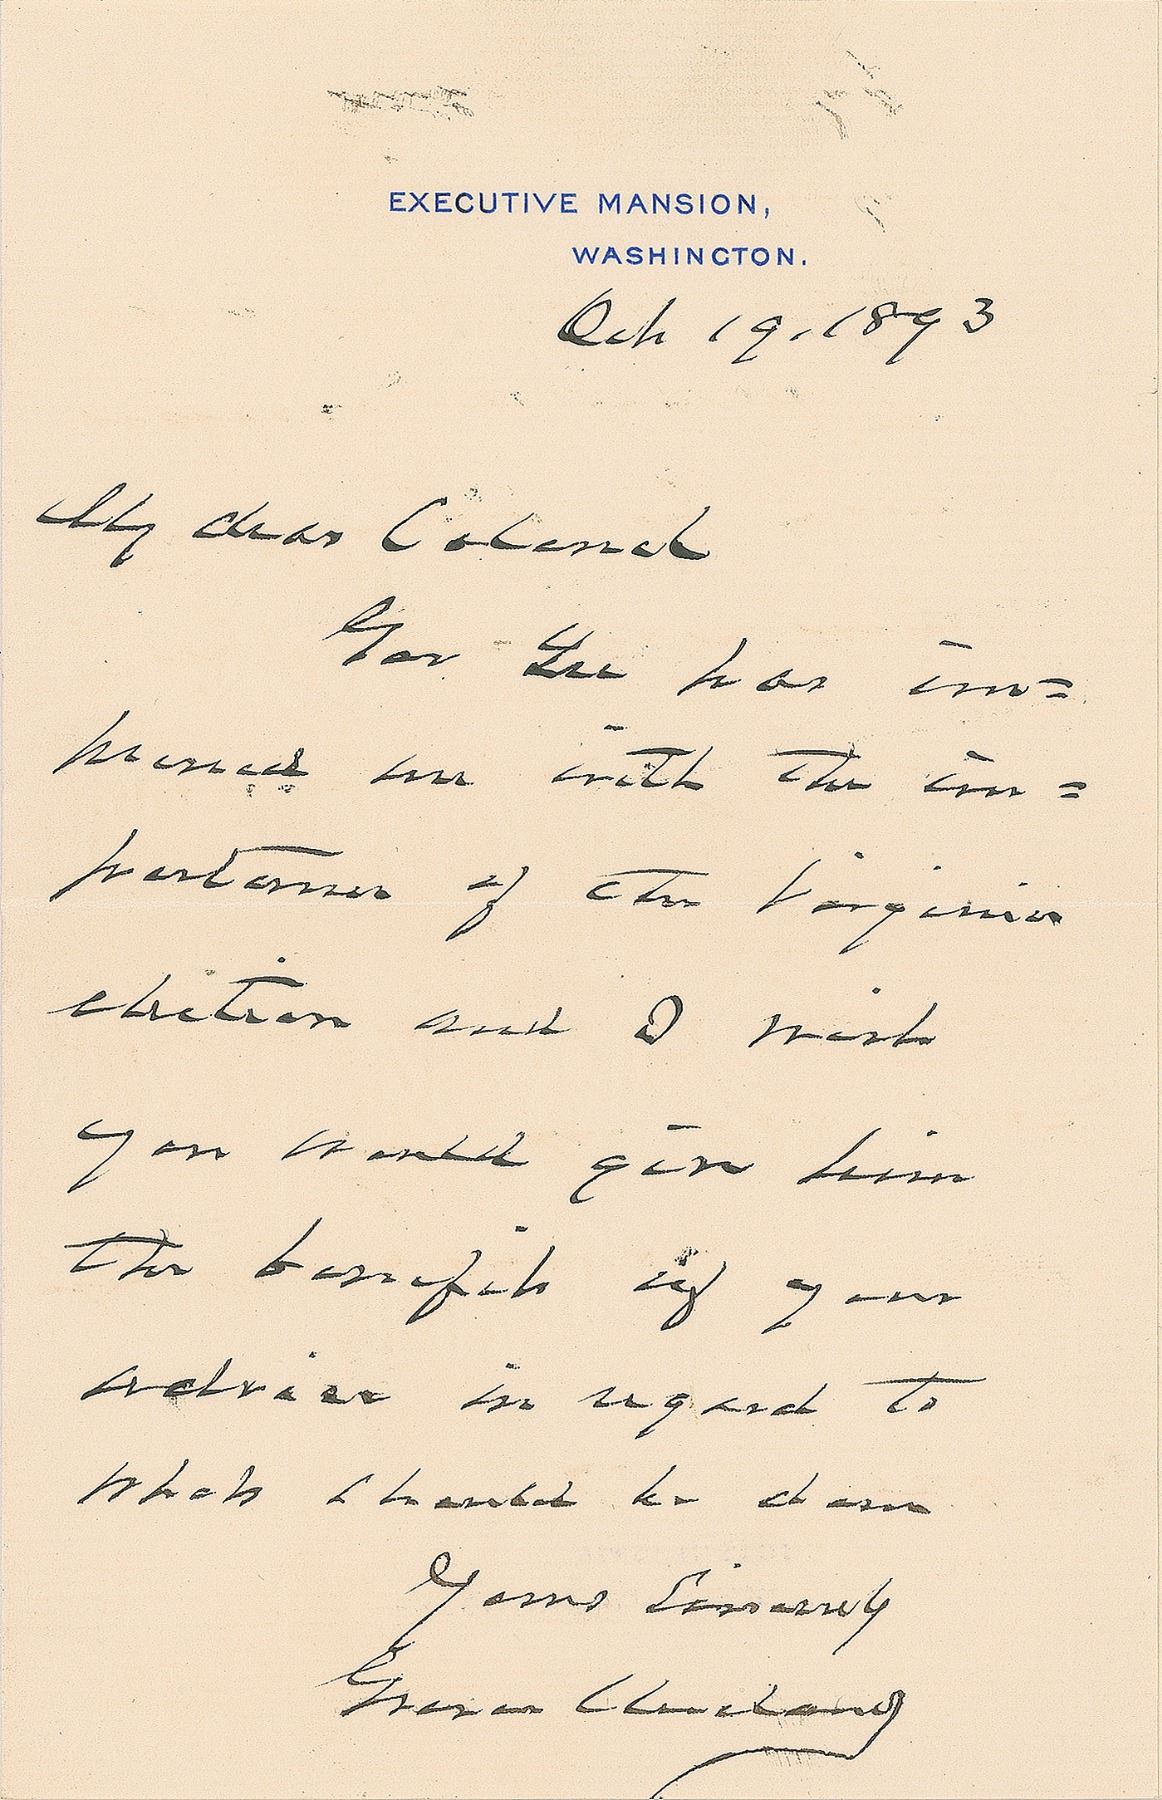 EXECUTIVE MANSION,
WASHINGTON.
Oct 19. 1893
My dear Colonel
Gov Lee has im=
pressed me with the im=
portance of the Virginia
election and I wish
you would give him
the benefit of your
advice in regard to
what should be done
Yours Sincerely
Grover Cleveland